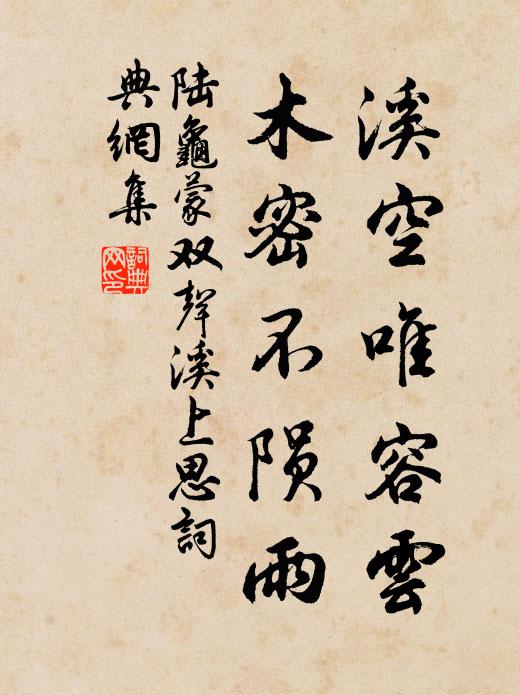 溪空唯容雲
木密不陨雨
陆龜蒙双聲溪上思詞
典網集
詞典
网印